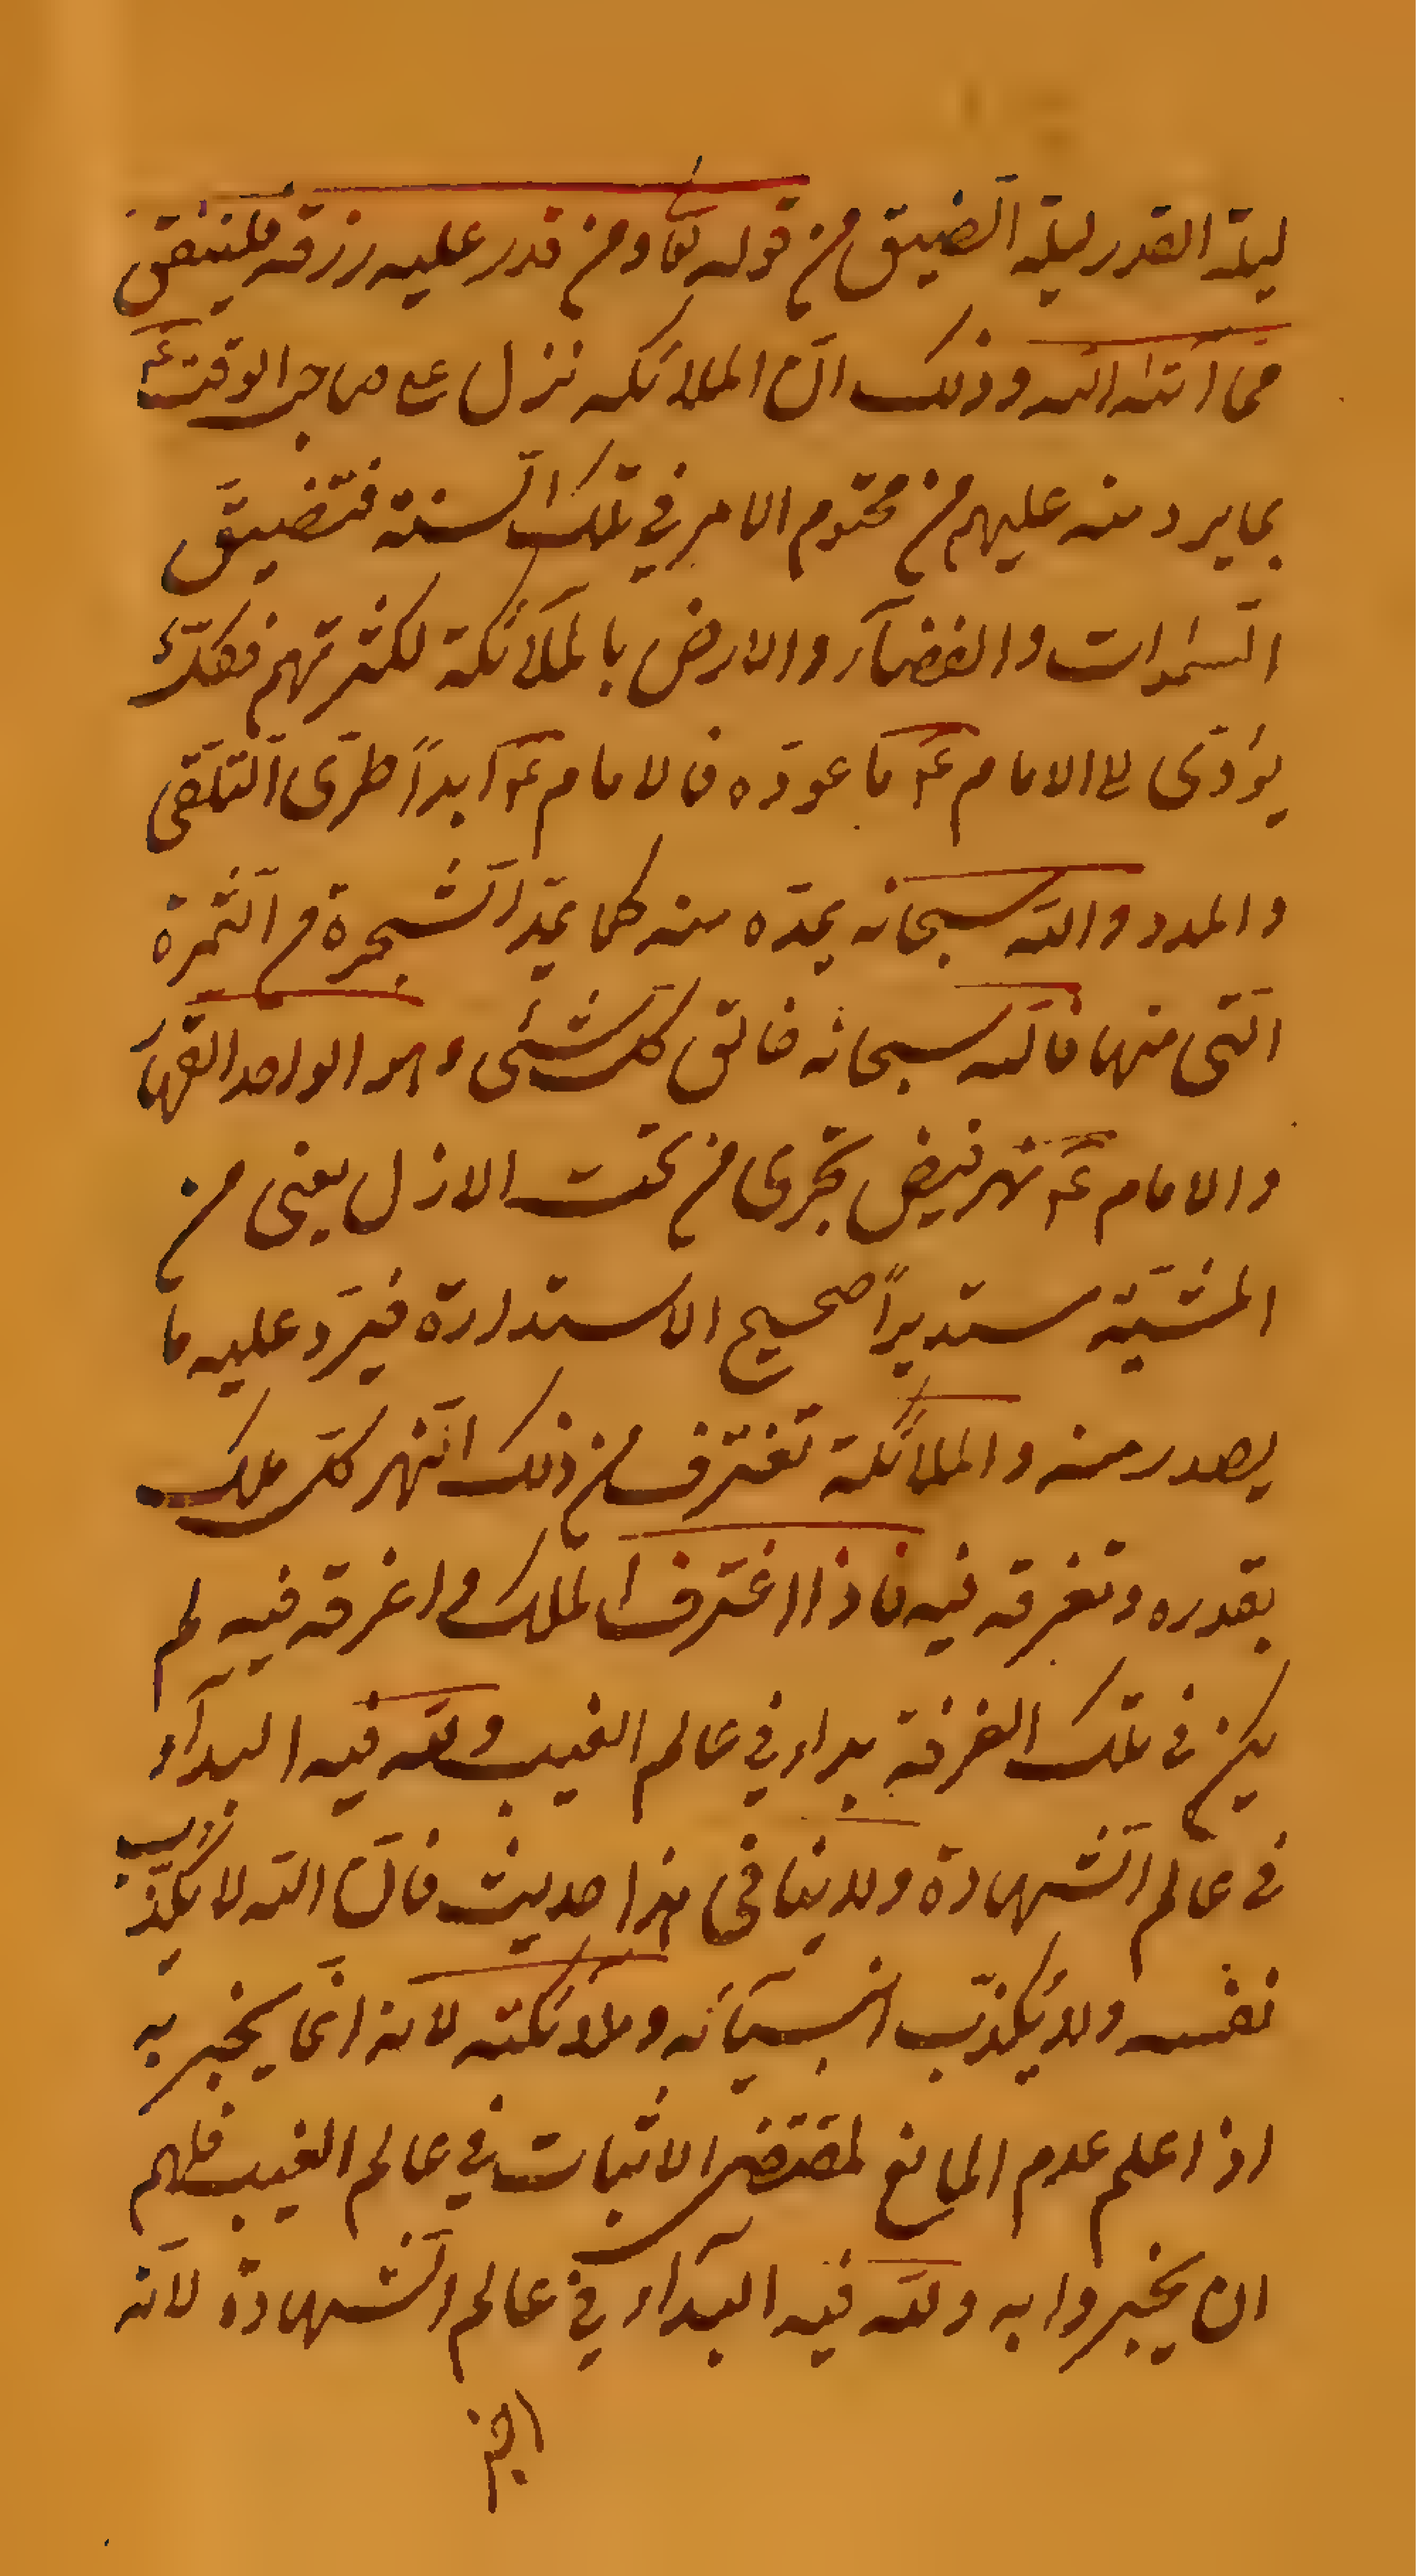 ليلة القدر ليلة الضيق من قوله تعا ومن قدر عليه رزقه فلينفق
مما اتٰه الله وذلك انّ الملائكه تنزل على صاحب الوقت عم
بما يرد منه عليهم من محتوم الامر في تلك السنة فتضيق
السمٰوات والفضآء والارض بالملآئكة لكثرتهم فملك
يؤدّى الى الامام عم ما عوّده فالامام عم ابداً طرىّ التلقى
والمدد والله سبحانه يمدّه منه كما يمدّ الشجرة من الثمرة
التى منها فالله سبحانه خالق كل شئى وهو الواحد القهار
والامام عم نهر فيض تجرى من تحت الازل يعنى من
المشيّة مستديراً صحيح الاستدارة فيرد عليه ما
يصدر منه والملائكة تغترف من ذلك النهر كل ملك
بقدره وتغرقه فيه فاذا اغترف الملك واغرقه فيه لم
يكن فى تلك الغرفة بداء في عالم الغيب ولله فيه البدآء
فى عالم الشهادة ولا ينافى هذا حديث فانّ الله لا يكذّب
نفسه ولا يكذّب انبيآئه وملائكته لانه انما يخبر به
اذا علم عدم المانع لمقتضى الاثبات في عالم الغيب فلهم
ان يخبروا به ولله فيه البدآء في عالم الشهادة لانّه